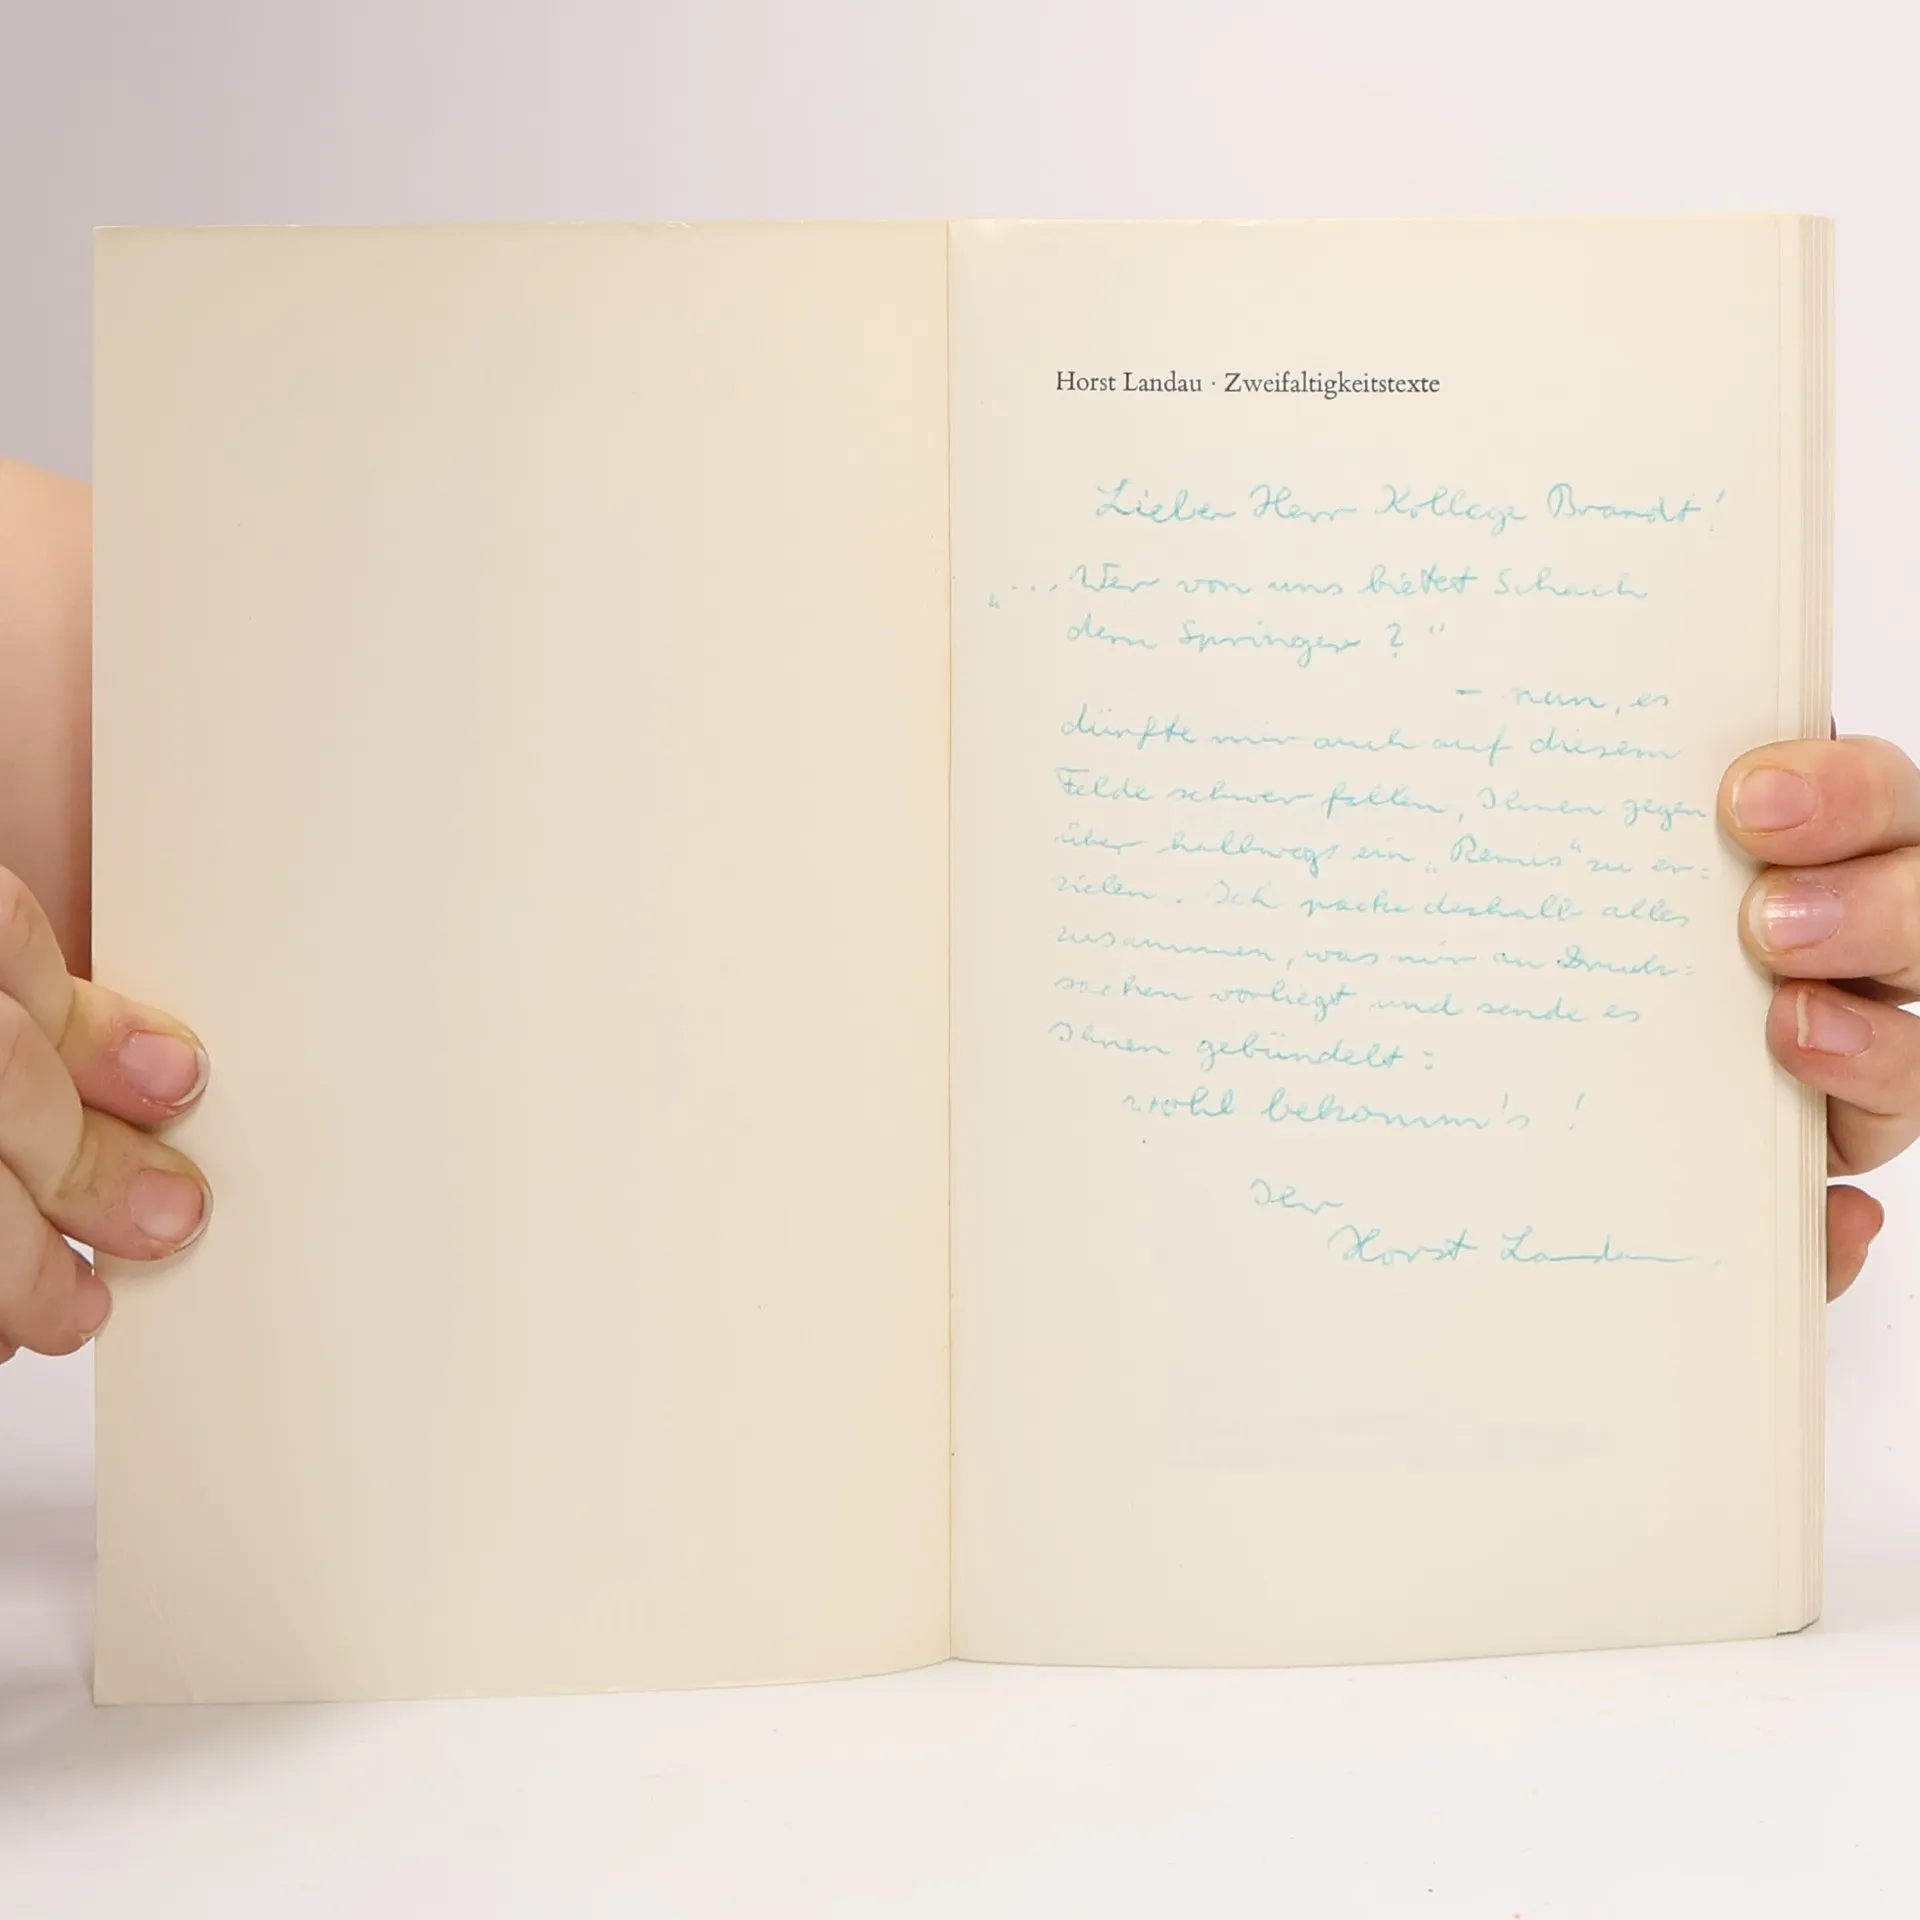 Horst Landau · Zweifaltigkeitstexte
Lieber Herr Kollege Brandt!
„... Wer von uns bietet Schach
dem Springer?"
– nun, es
dürfte mir auch auf diesem
Felde schwer fallen, Ihnen gegen
über halbwegs ein „Remis“ zu er=
zielen. Ich packe deshalb alles
zusammen, was mir an Druck=
sachen vorliegt und sende es
Ihnen gebündelt:
wohl bekomm's!
Ihr
Horst Landau.